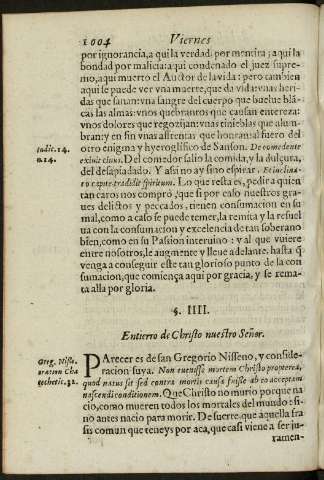 1004 Viernes
por ignorancia, a qui la verdad por mentira; aqui la
bondad por malicia: aqui condenado el juez supre-
mo, aqui muerto el Auctor de la vida: pero tambien
aqui se puede ver vna muerte, que da vida: vnas heri-
das que sanan: vna sangre del cuerpo que buelue blã-
cas las almas: vnos quebrantos que causan entereza:
vnos dolores que regozijan: vnas tinieblas que alum-
bran: y en fin vnas affrentas que honran: al fuero del
otro enigma y hyeroglifico de Sanson. De comedente
Iudic. 14.
n. 14.
exiuit cibus. Del comedor salio la comida, y la dulçura,
del desapiadado. Y assi no ay sino espirar. Et inclina-
to capite tradidit spiritum. Lo que resta es, pedir a quien
tan caros nos compró, que si por caso nuestros gra-
ues delictos y peccados, tienen consumacion en su
mal, como a caso se puede temer, la remita y la resuel
ua con la consumacion y excelencia de tan soberano
bien, como en su Passion interuino: y al que viuiere
entre nosotros, le augmente y lleue adelante, hasta q̃
venga a conseguir este tan glorioso punto de la con
sumacion, que comiença aqui por gracia, y se rema-
ta alla por gloria.
§. IIII.
Entierro de Christo nuestro Señor.
Greg. Nisse.
oration Cha
techetic. 32.
PArecer es de san Gregorio Nisseno, y conside-
racion suya. Non euenisse mortem Christo propterea,
quod natus sit sed contra mortis causa fuisse ab eo acceptam
nascendi conditionem. Que Christo no murio porque na
cio, como mueren todos los mortales del mundo: si-
no antes nacio para morir. De suerte, que aquella fra
sis comun que teneys por aca, que casi viene a ser ju-
ramen-